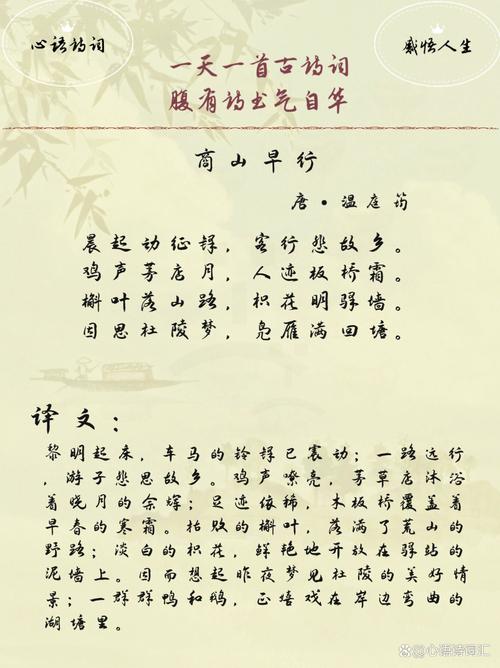 心语诗词
感悟人生
一天一首古诗词
腹有诗书气自华
商山早行
唐·温庭筠
晨起动征铎，客行悲故乡。
鸡声茅店月，人迹板桥霜。
槲叶落山路，枳花明驿墙。
因思杜陵梦，凫雁满回塘。
译文：
黎明起床，车马的铃铎已震动；一路远行
，游子悲思故乡。鸡声嘹亮，茅草店沐浴
着晓月的余辉；足迹依稀，木板桥覆盖着
早春的寒霜。枯败的槲叶，落满了荒山的
野路；淡白的枳花，鲜艳地开放在驿站的
泥墙上。因而想起昨夜梦见杜陵的美好情
景；一群群鸭和鹅，正嬉戏在岸边弯曲的
湖塘里。
@心语诗词汇